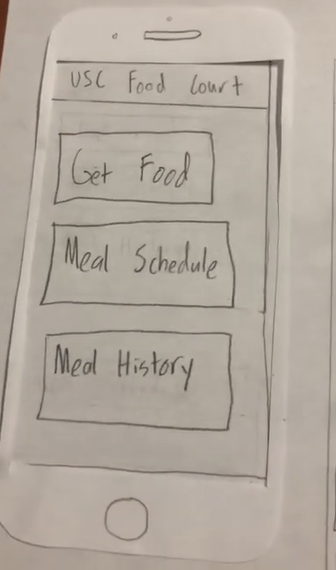 USC Food Court
Get Food
Meal Schedule
Meal History